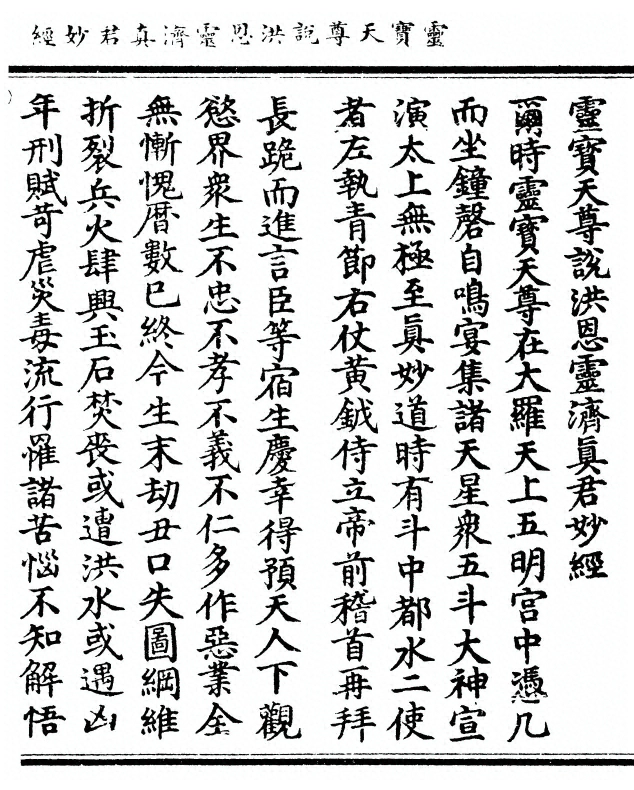 靈寶天尊說洪恩靈濟真君妙經
靈寶天尊說洪恩靈濟眞君妙經
爾時靈寶天尊在大羅天上五明宮中憑几
而坐鐘磬自鳴宴集諸天星衆五斗大神宣
演太上無極至眞妙道時有斗中都水二使
者左執青節右仗黃鉞侍立帝前稽首再拜
長跪而進言臣等宿生慶幸得預天人下觀
慾界衆生不忠不孝不義不仁多作惡業全
無慚愧曆數已終今生末劫丑口失圖綱維
折裂兵火肆興玉石焚喪或遭洪水或遇凶
年刑賦苛虐災毒流行罹諸苦惱不知解悟